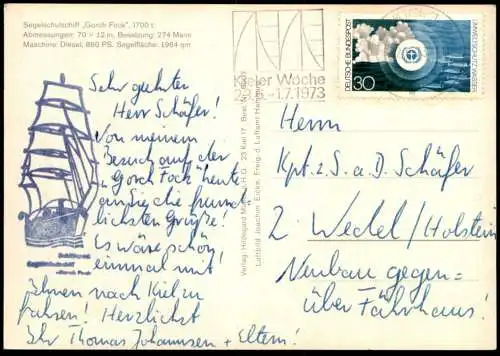 Segelschulschiff „Gorch Fock", 1700 t
Abmessungen: 70 × 12 m, Besatzung: 274 Mann
Maschine: Diesel, 880 PS. Segelfläche: 1964 qm
Sehr geehrter
Herr Schäfer!
Von meinem
Besuch auf der
„Gorch Fock" heute
an Sie die freund-
lichsten Grüße!
Es wäre schön,
einmal mit
Ihnen nach Kiel zu
fahren! Herzlichst
Ihr Thomas Johannsen + Eltern!
Segelschulschiff
Gorch Fock
Verlag: Hildegard M. H.O. 23 Kiel 17 Best. Nr.
Luftbild Joachim Eicke, Freig. d. Luftamt Hamburg
Kieler Woche
-1.7.1973
DEUTSCHE BUNDESPOST
UMWELTSCHUTZ
30
Herrn
Kpt. z. S. a. D. Schäfer
2. Wedel/Holstein
Neubau gegen-
über Fährhaus!